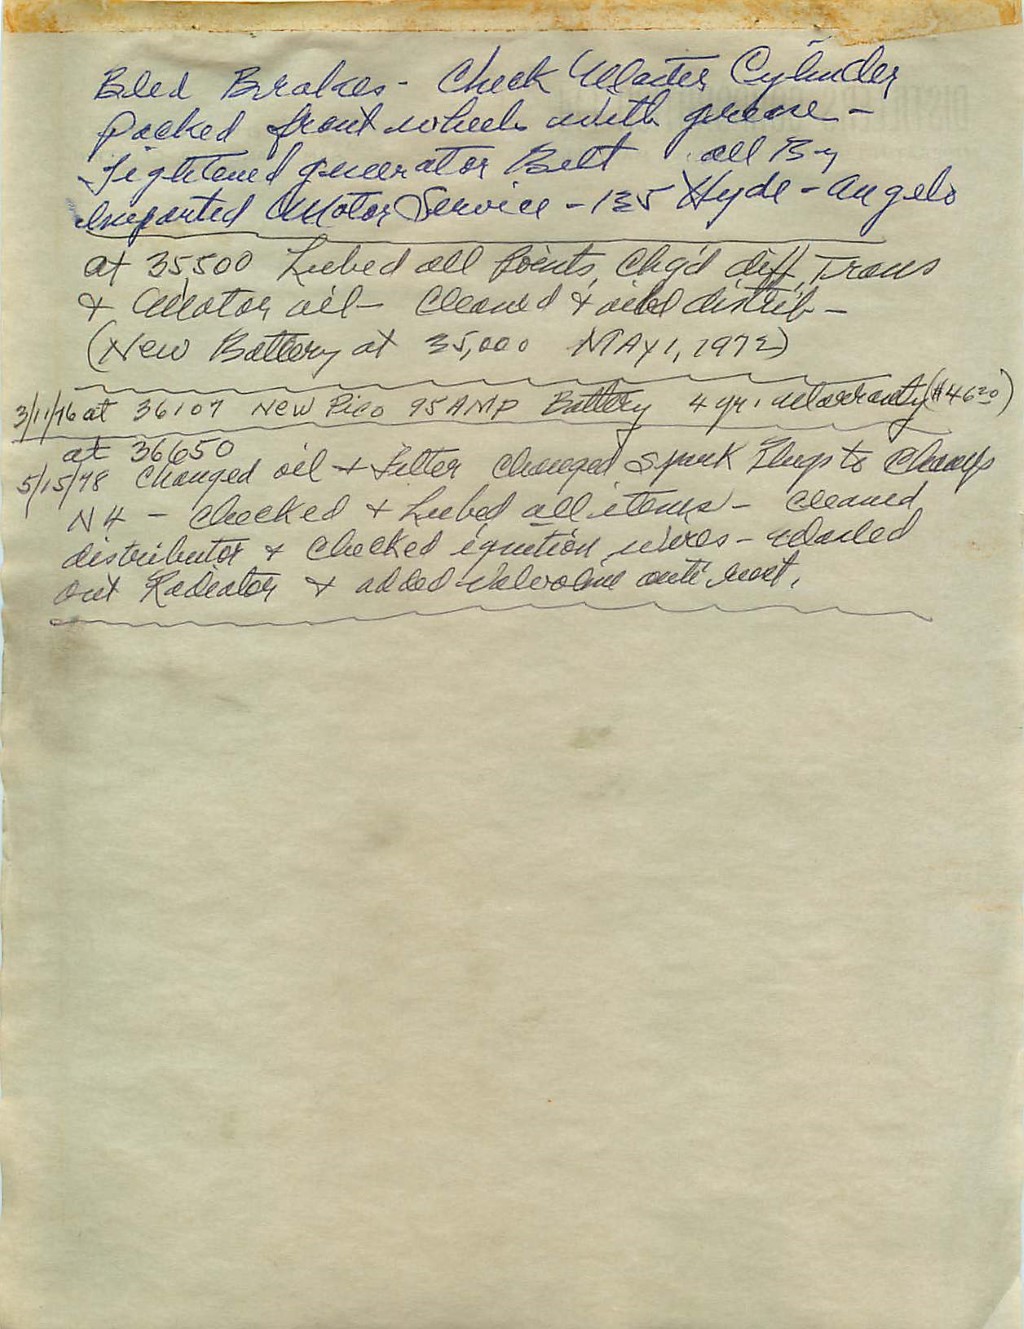 Bled Brakes - Check Master Cylinder
packed front wheels with grease -
Tightened generator Belt all By
Imported Motor Service - 135 Hyde - Angelo
at 35,500 Lubed all points, Chg'd diff, Trans
& Motor oil - Cleaned & oiled distrib -
(New Battery at 35,000 MAY 1, 1972)
3/11/76 at 36107 New Pico 95 AMP Battery 4 yr. Warranty ($46.20)
at 36650
5/15/78 Changed oil & Filter changed Spark Plugs to Champ
N4 - Checked & Lubed all items - Cleaned
distributor & Checked ignition wires - washed
out Radiator & added Valvoline anti rust.